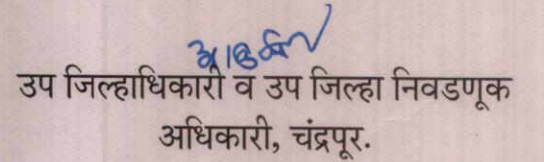 उप जिल्हाधिकारी व उप जिल्हा निवडणूक
अधिकारी, चंद्रपूर.